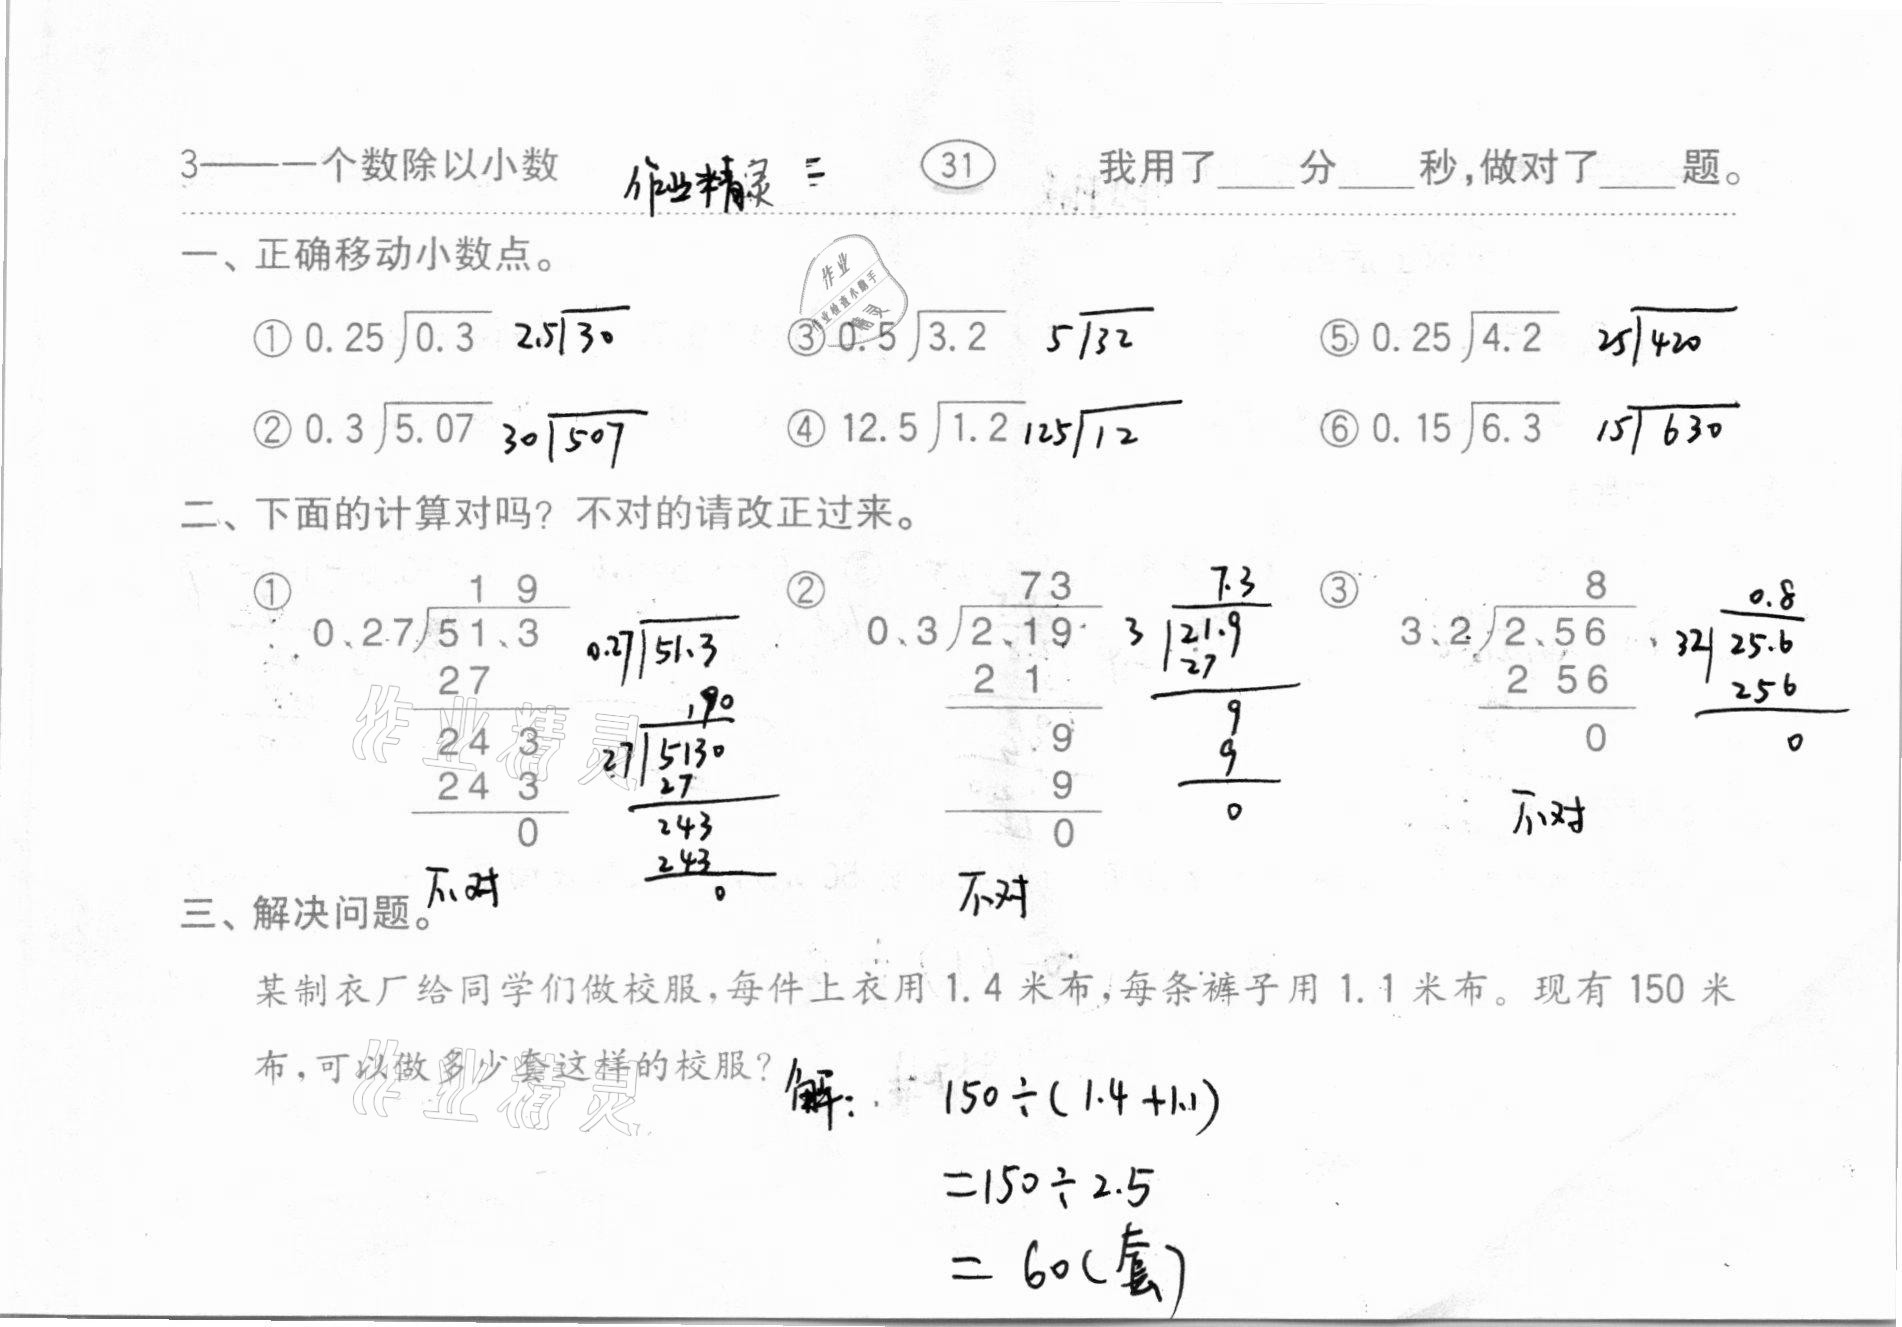 3——一个数除以小数 作业精灵 31 我用了____分____秒,做对了____题。
一、正确移动小数点。
作业
作业检查小助手
精灵
① 0.25⟌0.3 2.5⟌30 ③ 0.5⟌3.2 5⟌32 ⑤ 0.25⟌4.2 25⟌420
② 0.3⟌5.07 30⟌507 ④ 12.5⟌1.2 125⟌12 ⑥ 0.15⟌6.3 15⟌630
二、下面的计算对吗?不对的请改正过来。
①
1 9
0.27⟌51.3
27
24 3
24 3
0
不对
0.27⟌51.3
190
27⟌5130
27
243
243
0
②
73
0.3⟌2.19
2 1
9
9
0
不对
7.3
3⟌21.9
27
9
9
0
③
8
3.2⟌2.56
2 56
0
不对
0.8
32⟌25.6
256
0
作业精灵
三、解决问题。
某制衣厂给同学们做校服,每件上衣用 1.4 米布,每条裤子用 1.1 米布。现有 150 米
布,可以做多少套这样的校服?
作业精灵
解: 150÷(1.4+1.1)
=150÷2.5
= 60(套)